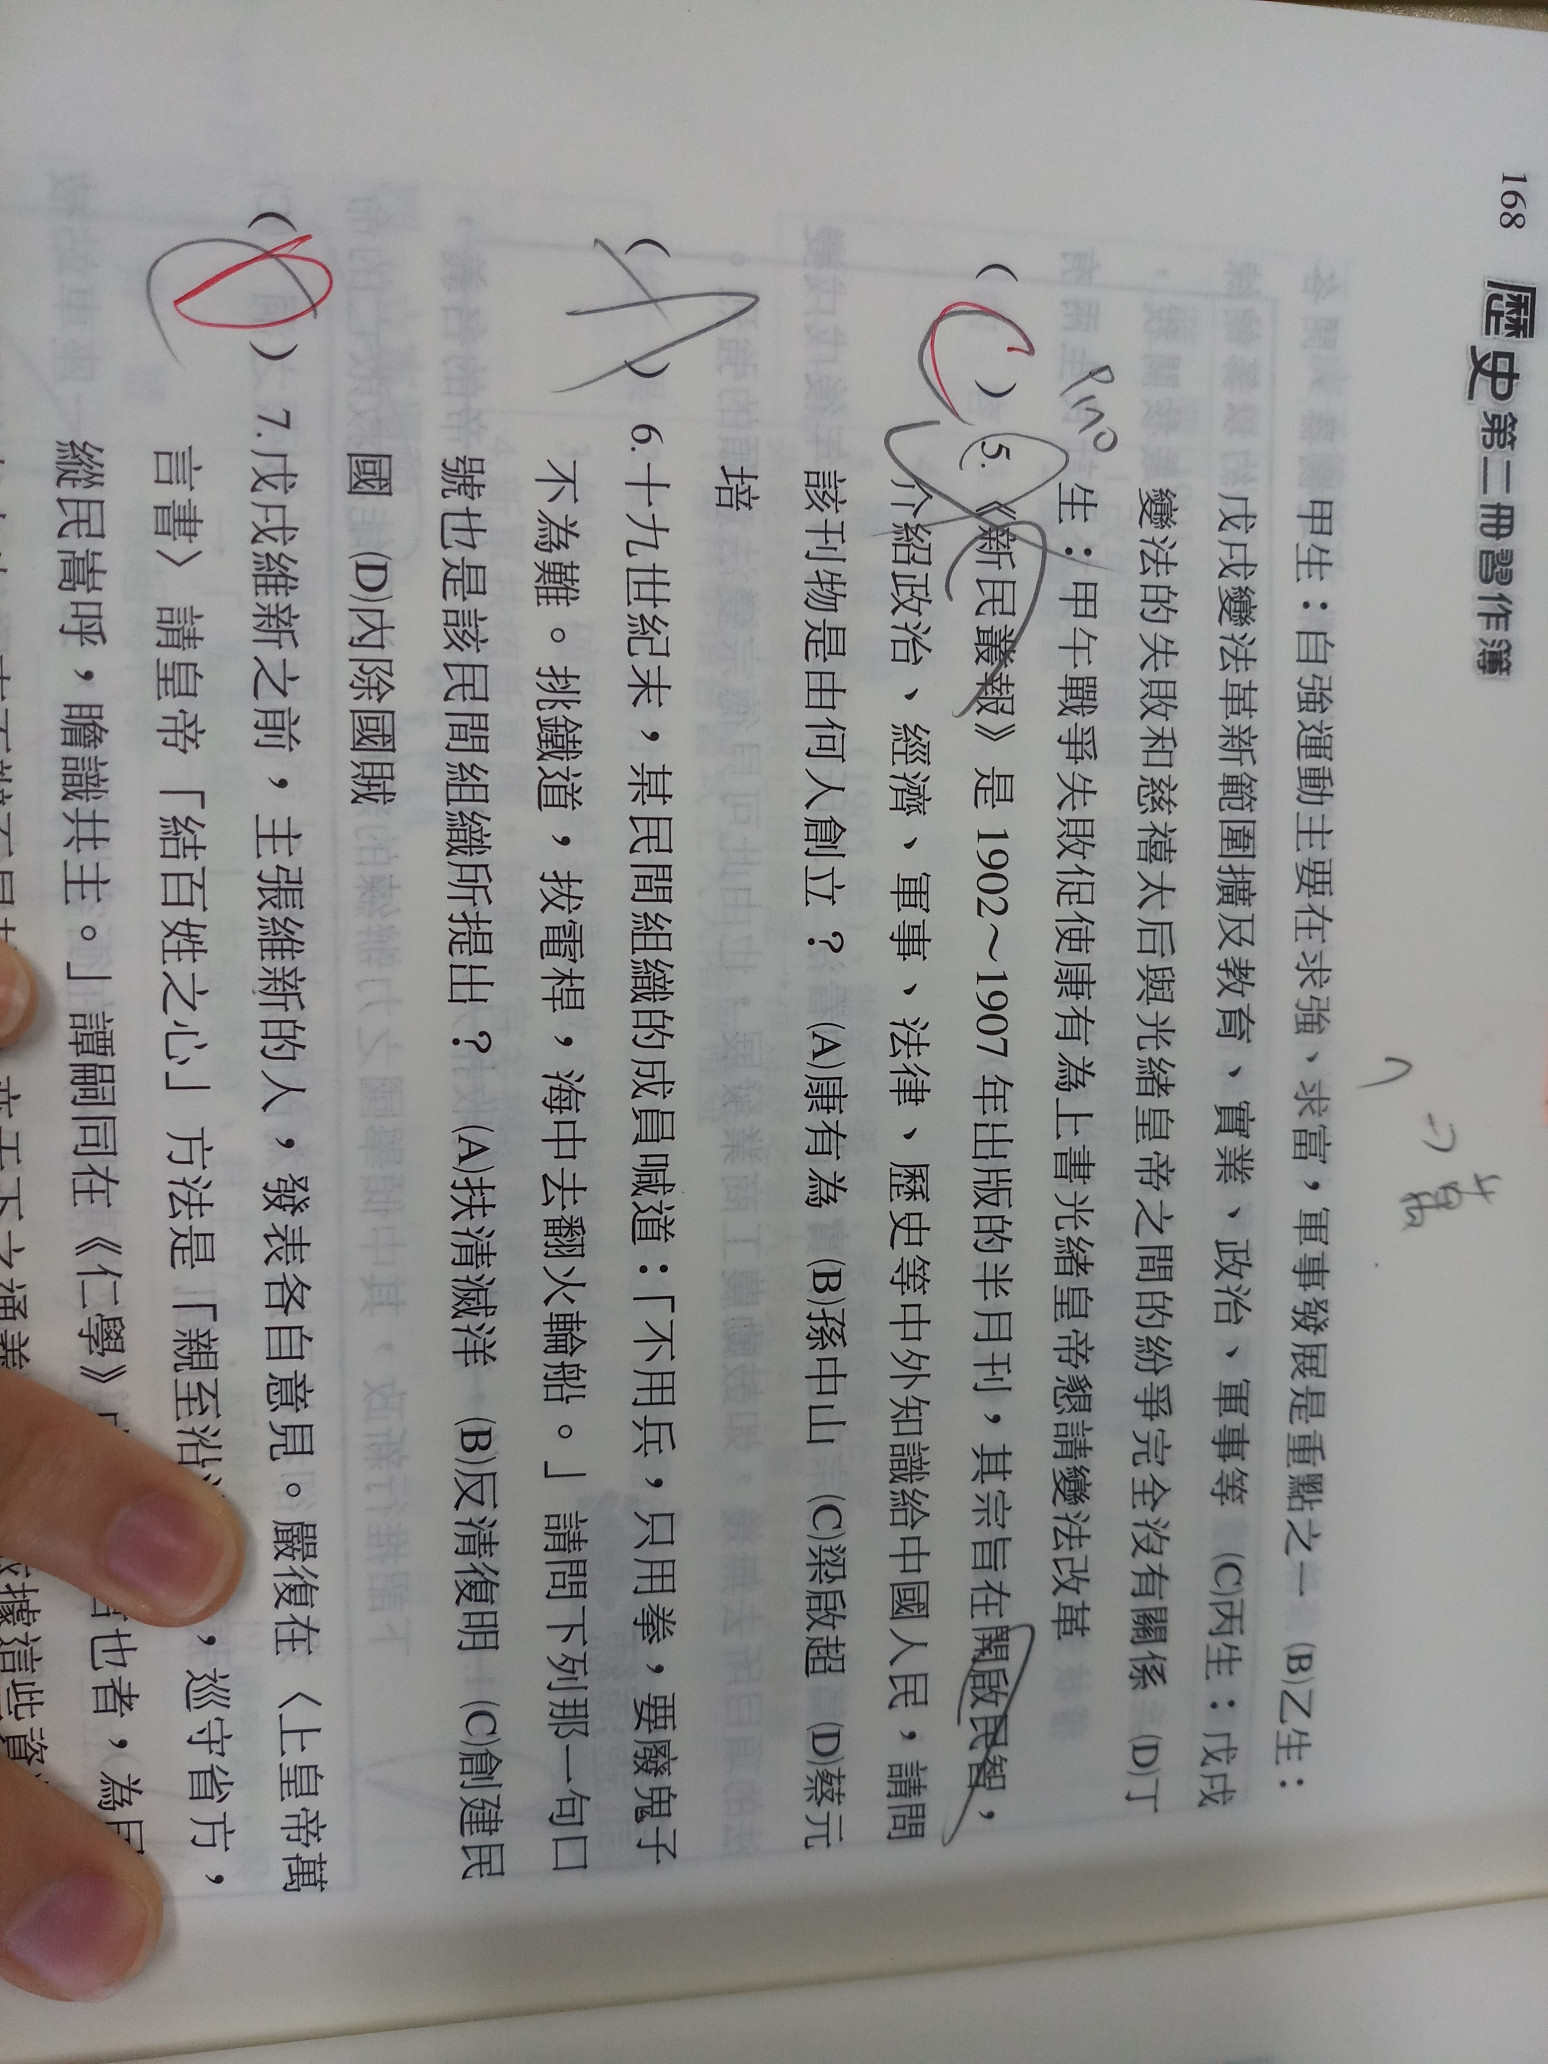 168 歷史第二冊習作簿
甲生：自強運動主要在求強、求富，軍事發展是重點之一 (B)乙生：
戊戌變法革新範圍擴及教育、實業、政治、軍事等 (C)丙生：戊戌
變法的失敗和慈禧太后與光緒皇帝之間的紛爭完全沒有關係 (D)丁
生：甲午戰爭失敗促使康有為上書光緒皇帝懇請變法改革
( C ) 5.《新民叢報》是 1902～1907 年出版的半月刊，其宗旨在開啟民智，
介紹政治、經濟、軍事、法律、歷史等中外知識給中國人民，請問
該刊物是由何人創立？ (A)康有為 (B)孫中山 (C)梁啟超 (D)蔡元
培
( A ) 6.十九世紀末，某民間組織的成員喊道：「不用兵，只用拳，要廢鬼子
不為難。挑鐵道，拔電桿，海中去翻火輪船。」請問下列那一句口
號也是該民間組織所提出？ (A)扶清滅洋 (B)反清復明 (C)創建民
國 (D)內除國賊
( D ) 7.戊戌維新之前，主張維新的人，發表各自意見。嚴復在〈上皇帝萬
言書〉請皇帝「結百姓之心」方法是「親至沿，巡守省方，
縱民嵩呼，瞻識共主。」譚嗣同在《仁學》也者，為民